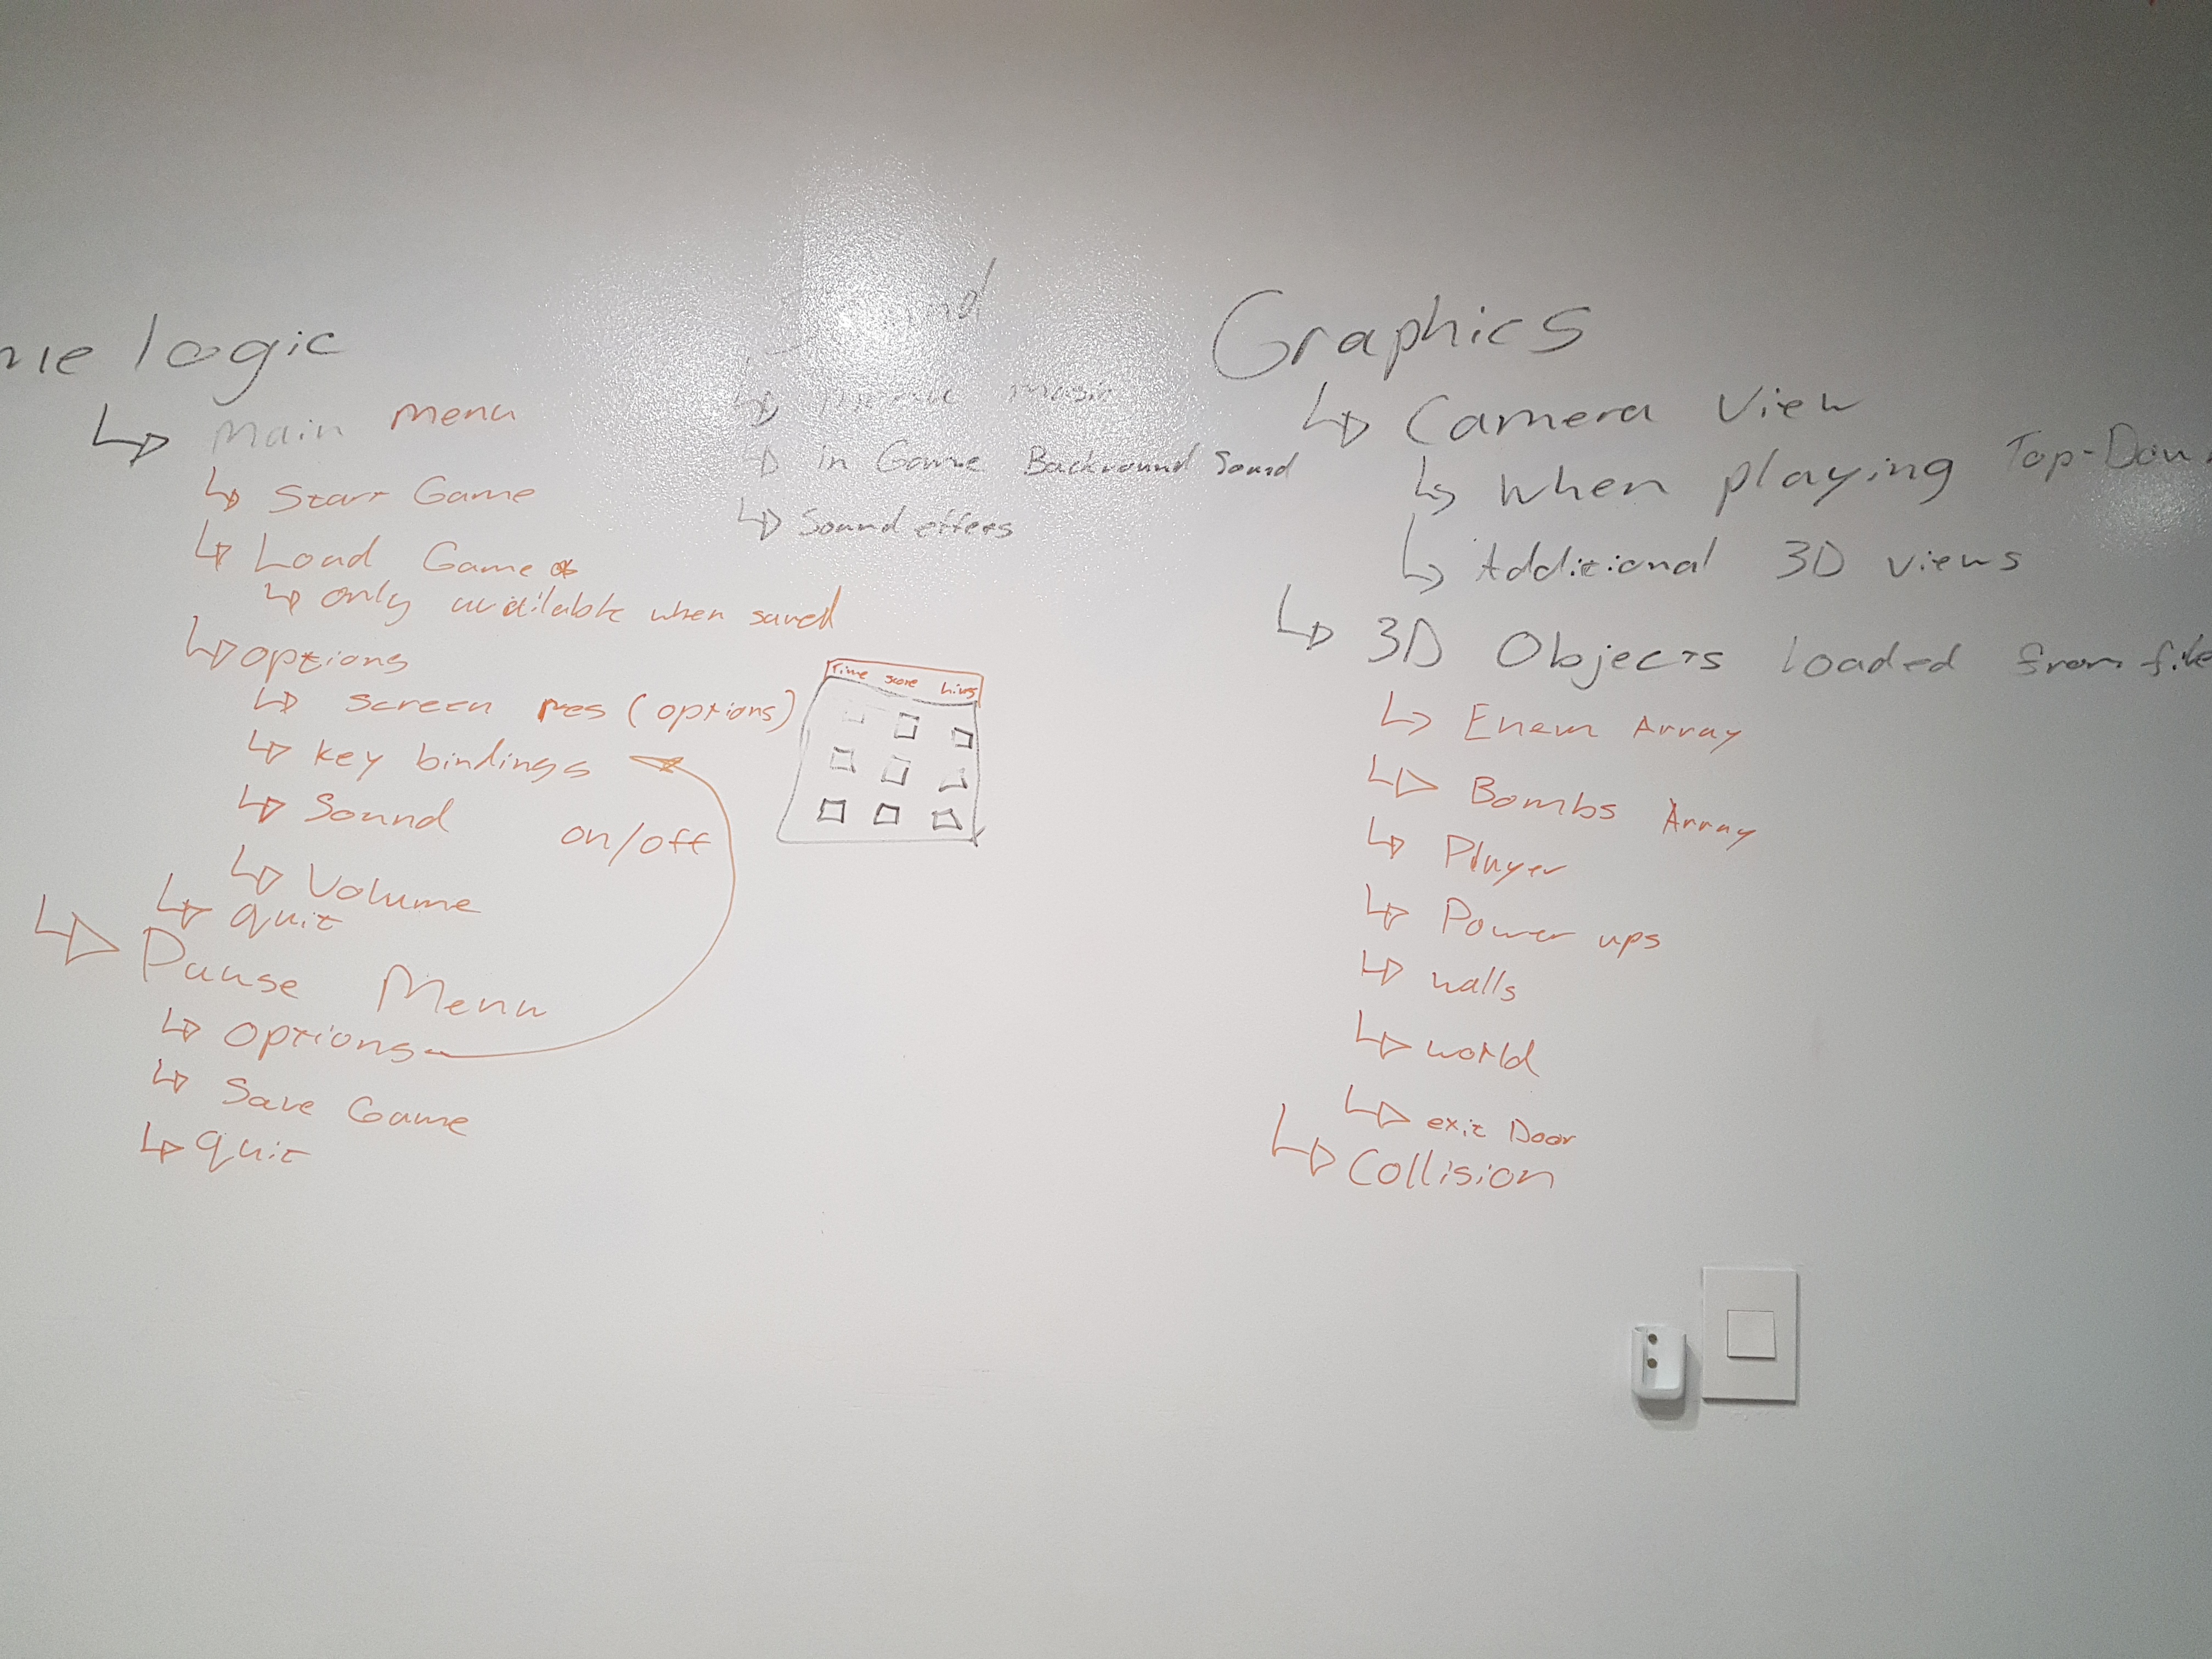 me logic
Main Menu
Start Game
Load Game *
only available when saved
options
screen res (options)
key bindings
Sound on/off
Volume
quit
Pause Menu
options
Save Game
quit
Music
in Game Backround Sound
Sound effees
Time score lives
Graphics
Camera View
when playing Top-Down
Additional 3D views
3D Objects loaded from file
Enem Array
Bombs Array
Player
Power ups
walls
world
exit Door
Collision